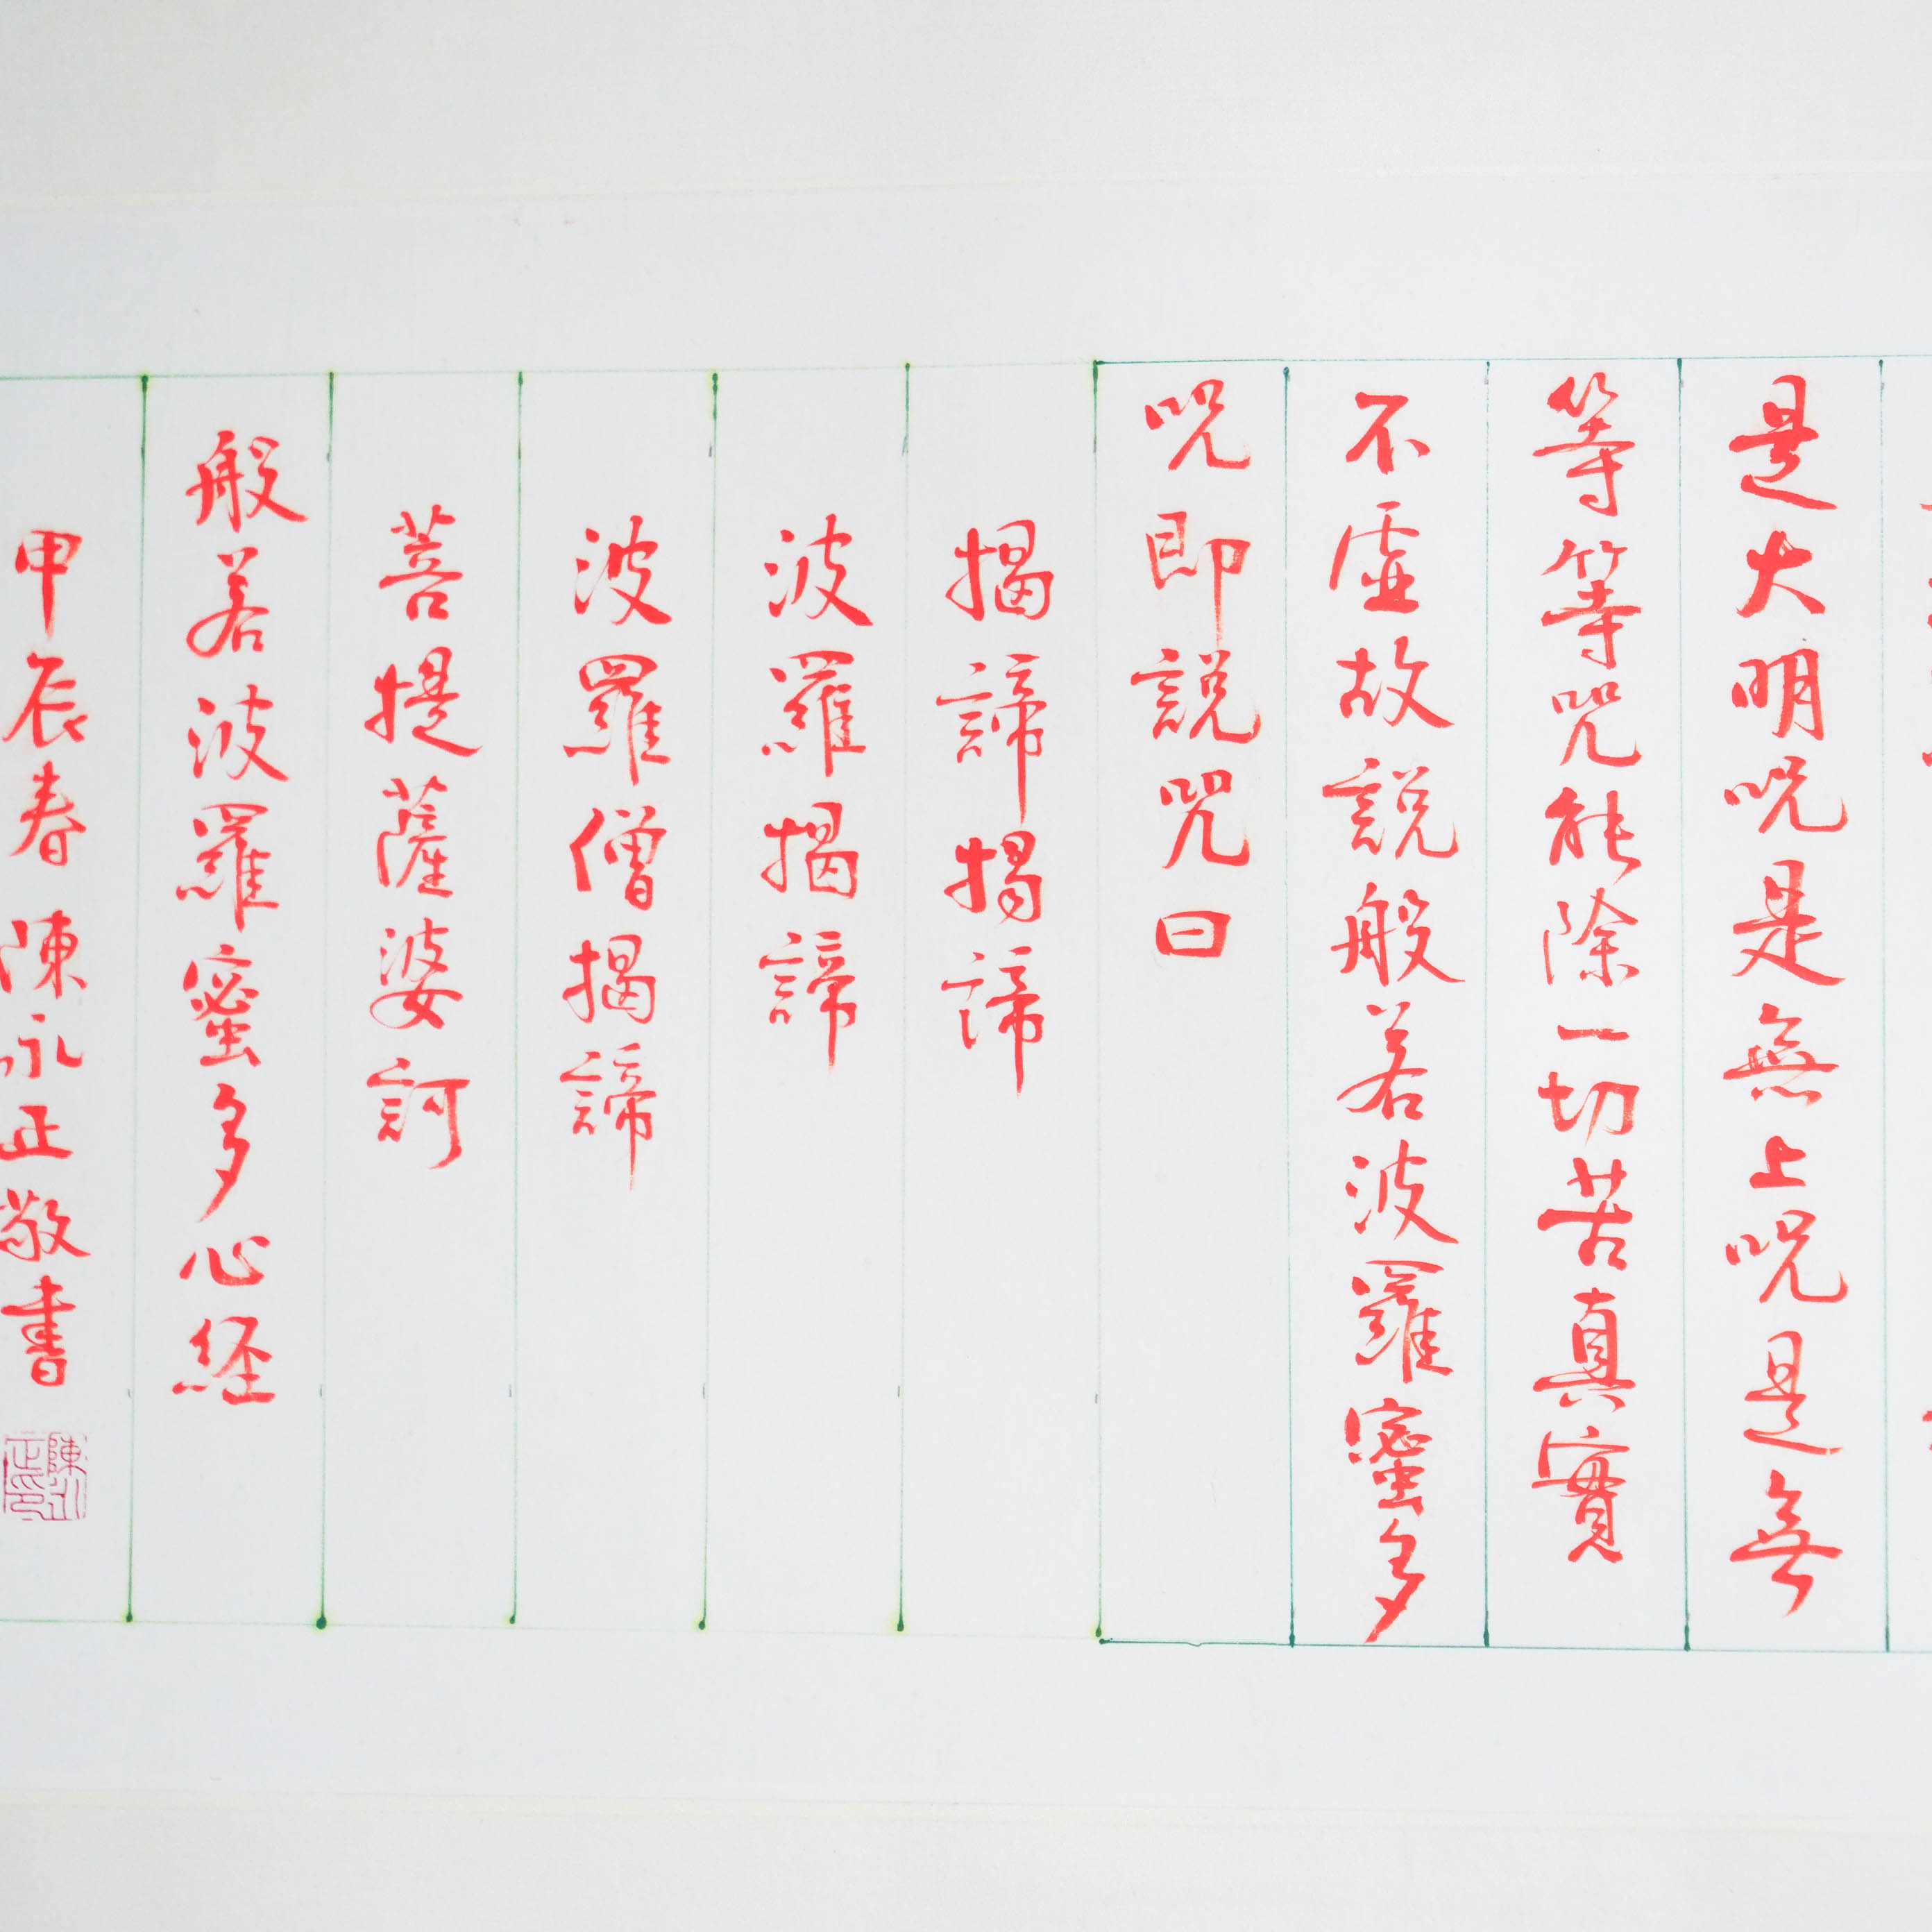 是大明呪是無上呪是無
等等咒能除一切苦真實
不虛故說般若波羅蜜多
呪即說咒曰
揭諦揭諦
波羅揭諦
波羅僧揭諦
菩提薩婆訶
般若波羅蜜多心经
甲辰春 陳永正敬書
陳永正印